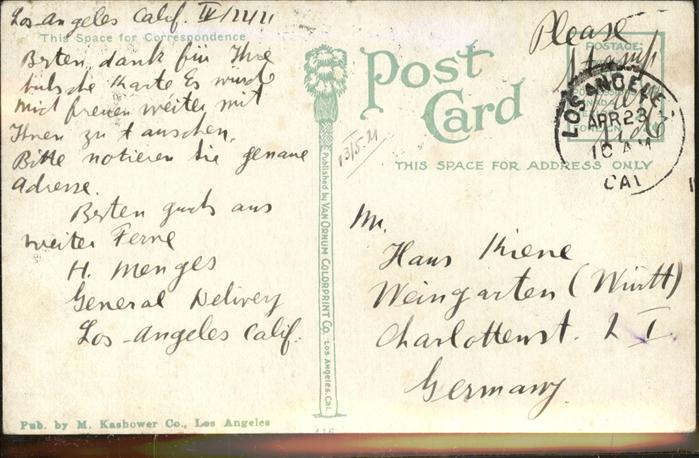 Los-Angeles Calif. IV/22/21
This Space for Correspondence
Besten dank für Ihre
hübsche Karte Es wurde
mich freuen weiter mit
Ihnen zu tauschen.
Bitte notieren Sie genaue
Adresse.
Besten gruß aus
weiter Ferne
H. Menges
General Delivery
Los-Angeles Calif.
Pub. by M. Kashower Co., Los Angeles
Published by VAN ORNUM COLORPRINT CO. LOS ANGELES, CAL.
13/5-21
Post
Card
THIS SPACE FOR ADDRESS ONLY
Please
stamp
POSTAGE:
LOS ANGELES
APR 23
10 AM
CAL
Mr.
Hans Kiene
Weingarten (Württ)
Charlottenst. 2 I
Germany.